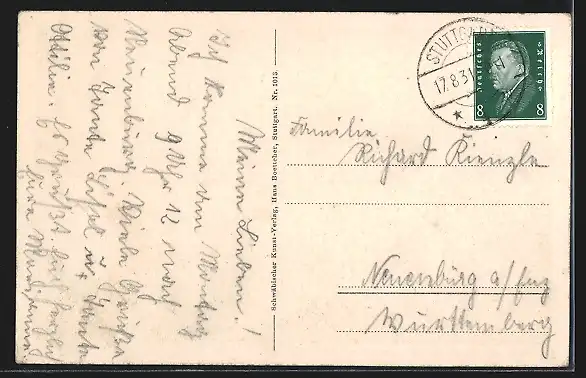 Meine Lieben!
Ich komme am Montag
Abend 9 Uhr 12 nach
Neuenbürg. Viele Grüße
von Tante Lisel u. Tante
Ottilie. Es grüßt Euch herzlich
Eure
Schwäbischer Kunst-Verlag, Hans Boettcher, Stuttgart. Nr. 1013.
STUTTGART
17.8.31
Deutsches Reich
8 8
Familie
Richard Kienzle
Neuenbürg a/Enz
Württemberg